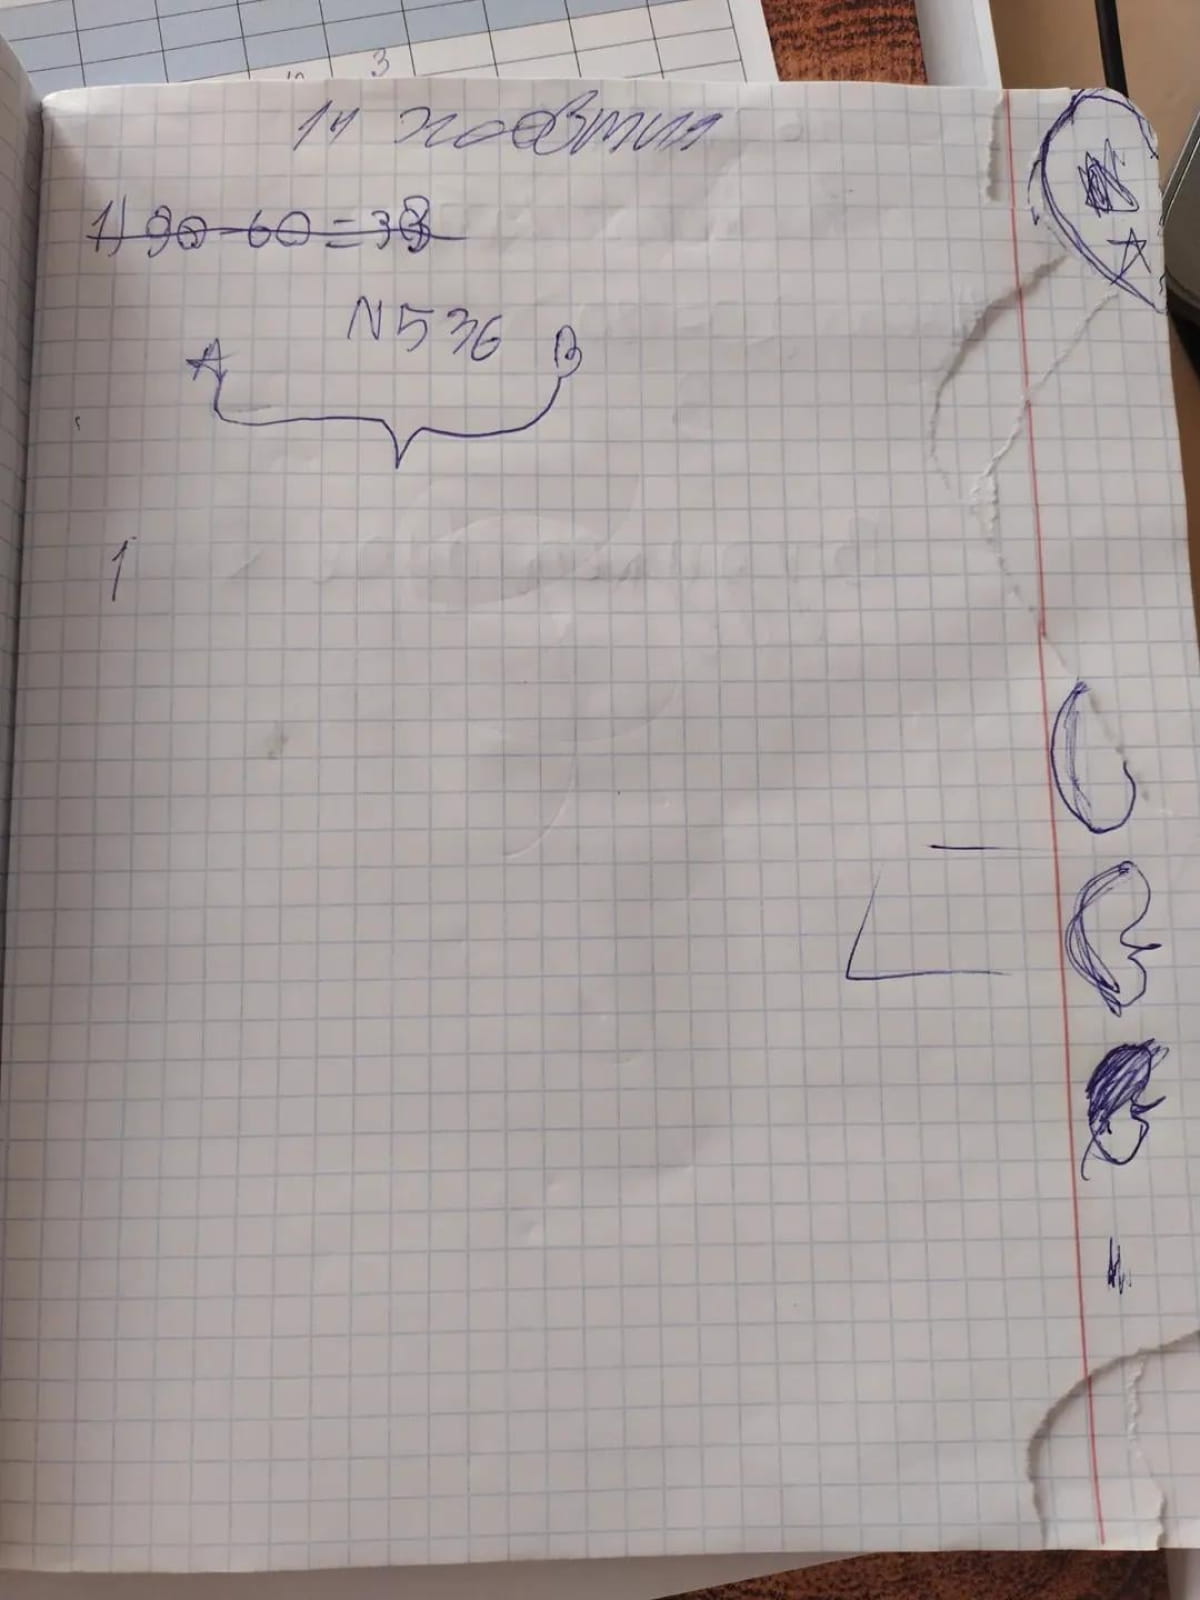 3
14 жовтня
1) 90-60=30
N536
A B
1